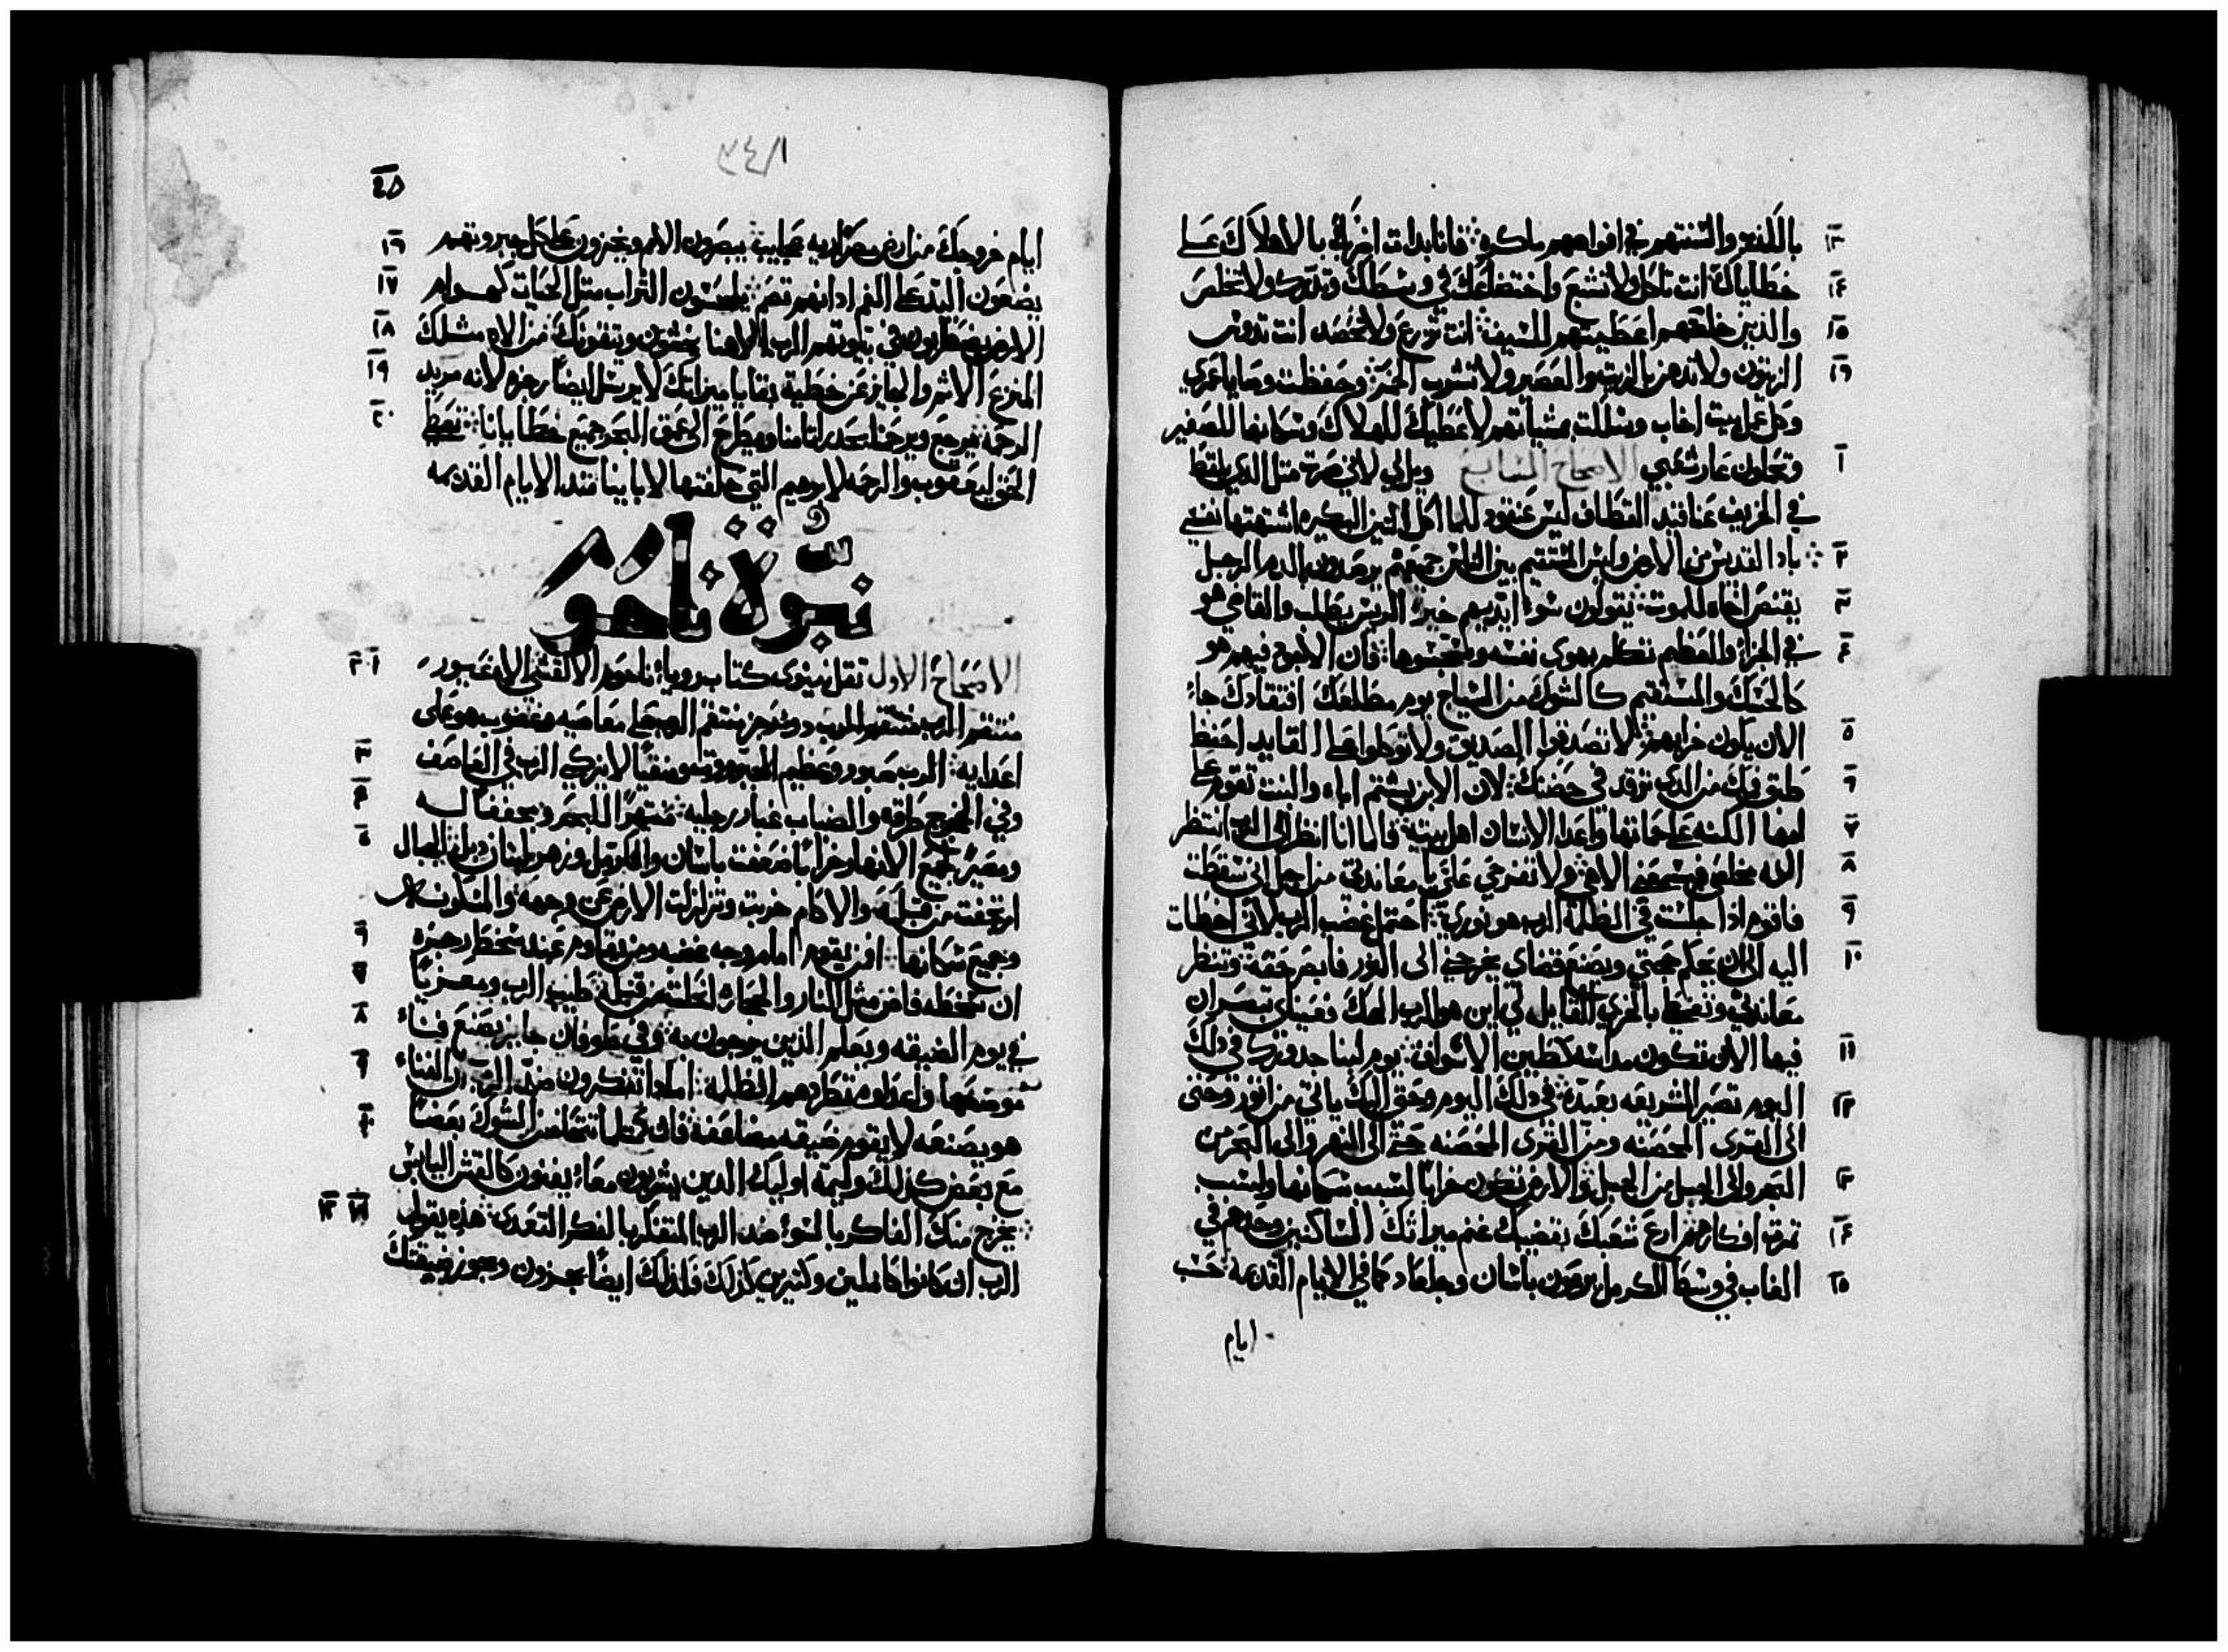 ١٣ بالكذب والسنتهم في افواههم ماكره ∴ فانا بدات اضربك بالاهلاك على
١٤ خطاياك انت تاكل ولا تشبع واختضاعك في وسطك وتدرك ولا تخلص
١٥ والذين خلصتهم اعطيتهم للسيف ∴ انت تزرع ولا تحصد انت تدوس
١٦ الزيتون ولا تدهن بالزيت والعصير ولا تشرب الخمر ∴ وحفظت وصايا عمري
وكل عمل بيت اخاب وسللت بمشياتهم لاعطيك للهلاك وسكانها للصفير
١ وتحملون عار شعبي الاصحاح السابع ويل لي لاني صرت مثل الذي يلتقط
في الخريف عناقيد القطاف ليس عنقود للماكل التين البكيره اشتهتها نفسي
٢ ∴ باد القديس من الارض وليس المستقيم بين الناس جميعهم يرصدون الدم الرجل
٣ يقتنص اخاه للموت ∴ يقولون سوء ايديهم خير ∴ الريس يطلب والقاضي هو
٤ في الجزاء والعظيم تكلم بهوى نفسه وسجسوها ∴ فان الاجود فيهم هو
كالحسك والمستقيم كالشوك من السياج يوم مطلعك افتقادك جاء
٥ الان يكون خرابهم ∴ لا تصدقوا الصديق ولا توكلوا على القايد احفظ
٦ طبق فمك من الذي ترقد في حضنك ∴ لان الابن يشتم اباه والبنت تقوم على
٧ امها الكنه على حماتها واعدا الانسان اهل بيته ∴ فاما انا انظر الى الرب انتظر
٨ الله مخلصي فيسمعني الاهي ∴ ولا تفرحي علي يا معاندتي من اجل اني سقطت
٩ فاقوم اذا جلست في الظلمة الرب هو نوري ∴ احتمل غضب الرب لاني اخطات
١٠ اليه الى ان يحكم حجتي ويصنع قضاي يخرجني الى النور فابصر حقه ∴ وتنظر
معاندتي وتتغطى بالخزي القايل لي اين هو الرب الهك وعيناي تبصران
١١ فيها الان تكون مداسه كطين الاسواق ∴ يوم لبنا جدودك في ذلك
١٢ اليوم تصير الشريعه بعيدة ∴ في ذلك اليوم وحتى اليك ياتي من اتور وحتى
الى القرى المحصنه ومن القرى المحصنه حتى الى النهر والى البحر من
١٣ البحر والى الجبل من الجبل ∴ والارض تكون خرابا لسبب سكانها ولسبب
١٤ ثمرة افكارهم ∴ ارع شعبك بقضيبك غنم ميراثك الساكنين وحدهم في
١٥ الغاب في وسط الكرمل يرعون باشان وجلعاد كما في الايام القديمه ∴ حسب
ايام
٣٤١
٤٥
١٦ ايام خروجك من ارض مصر اريه عجايب ∴ يبصرون الامم ويخزون على كل جبروتهم
١٧ يضعون اليد على الفم اذانهم تصم ∴ يلحسون التراب مثل الحيات كهوام
١٨ الارض يضطربون في بيوتهم الرب الاهنا يخشون ويتقونك ∴ من الاه مثلك
١٩ المنزع الاثم والجايز عن خطية بقايا ميراثك لا يرسل ايضا رجزه لانه مريد
٢٠ الرحمه ∴ يرجع ويرحمنا يحدر اثامنا ويطرح الى عمق البحر جميع خطايانا ∴ تعطي
الحق ليعقوب والرحمه لابرهيم التي حلفتها لابائنا منذ الايام القديمه
نبوة ناحوم
١ ٢ الاصحاح الاول ثقل نينوى كتاب رويا ناحوم الالقشي الاه غيور
منتقم الرب منتقم الرب ذو رجز منتقم الرب على معاصيه وغضوب هو على
٣ اعدايه ∴ الرب صبور وعظيم القوة ومنقيا لا يزكي الرب في العاصف
٤ وفي الهيج طرقه والضباب غبار رجليه ∴ منتهرا للبحر ومجففا له
٥ ومصير جميع الانهار خرابا ضعفت باسان والكرمل وزهر لبنان ذبل ∴ الجبال
ارتجفت من قبله والاكام خربت وتزلزلت الارض عن وجهه والمسكونه
٦ وجميع سكانها ∴ افمن يقوم امام وجه غضبه ومن يقاوم عند سخط رجزه
٧ ان سخطه فاض مثل النار والحجارة انحلت من قبله ∴ طيب الرب ومعزيا
٨ في يوم الضيقه ويعلم الذين يرجون به ∴ وفي طوفان جايز يصنع فناء
٩ موضعها واعداه تطردهم الظلمه ∴ لماذا تفكرون ضد الرب الفناء
١٠ هو يصنعه لا يقوم ضيقه مضاعفه ∴ فان كما تتخاصر الشوك بعضا
مع بعض كذلك وليمة اوليك الذين يشربون معا يفنون كالقش اليابس
١١ ١٢ ∴ يخرج منك الفاكر بالسوء ضد الرب المتفكر بالفكر التعدى ∴ هذه يقول
الرب ان كانوا كاملين وكثيرين كذلك فلذلك ايضا يجزون ويجوز ضيقتك